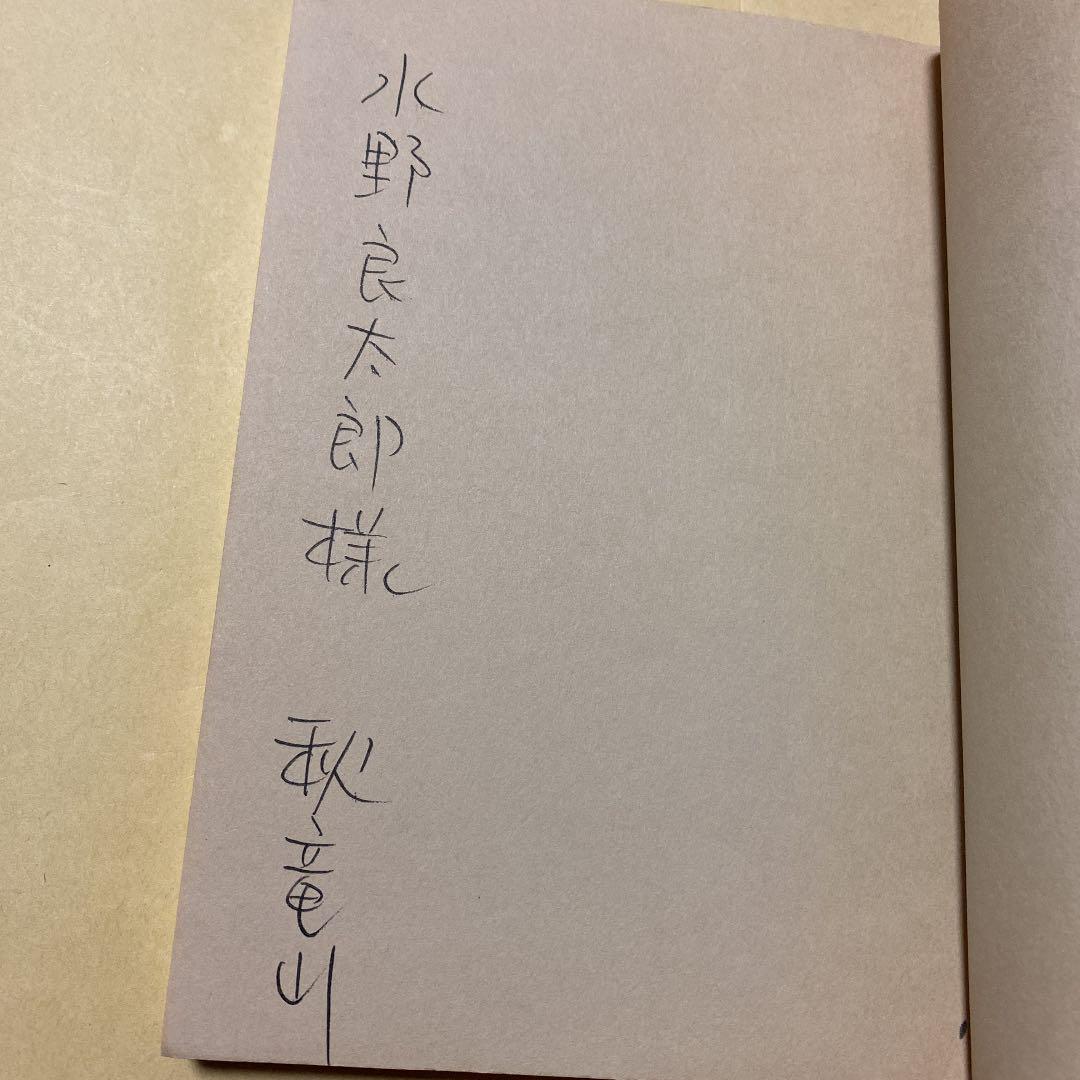 水野良太郎様
秋竜山